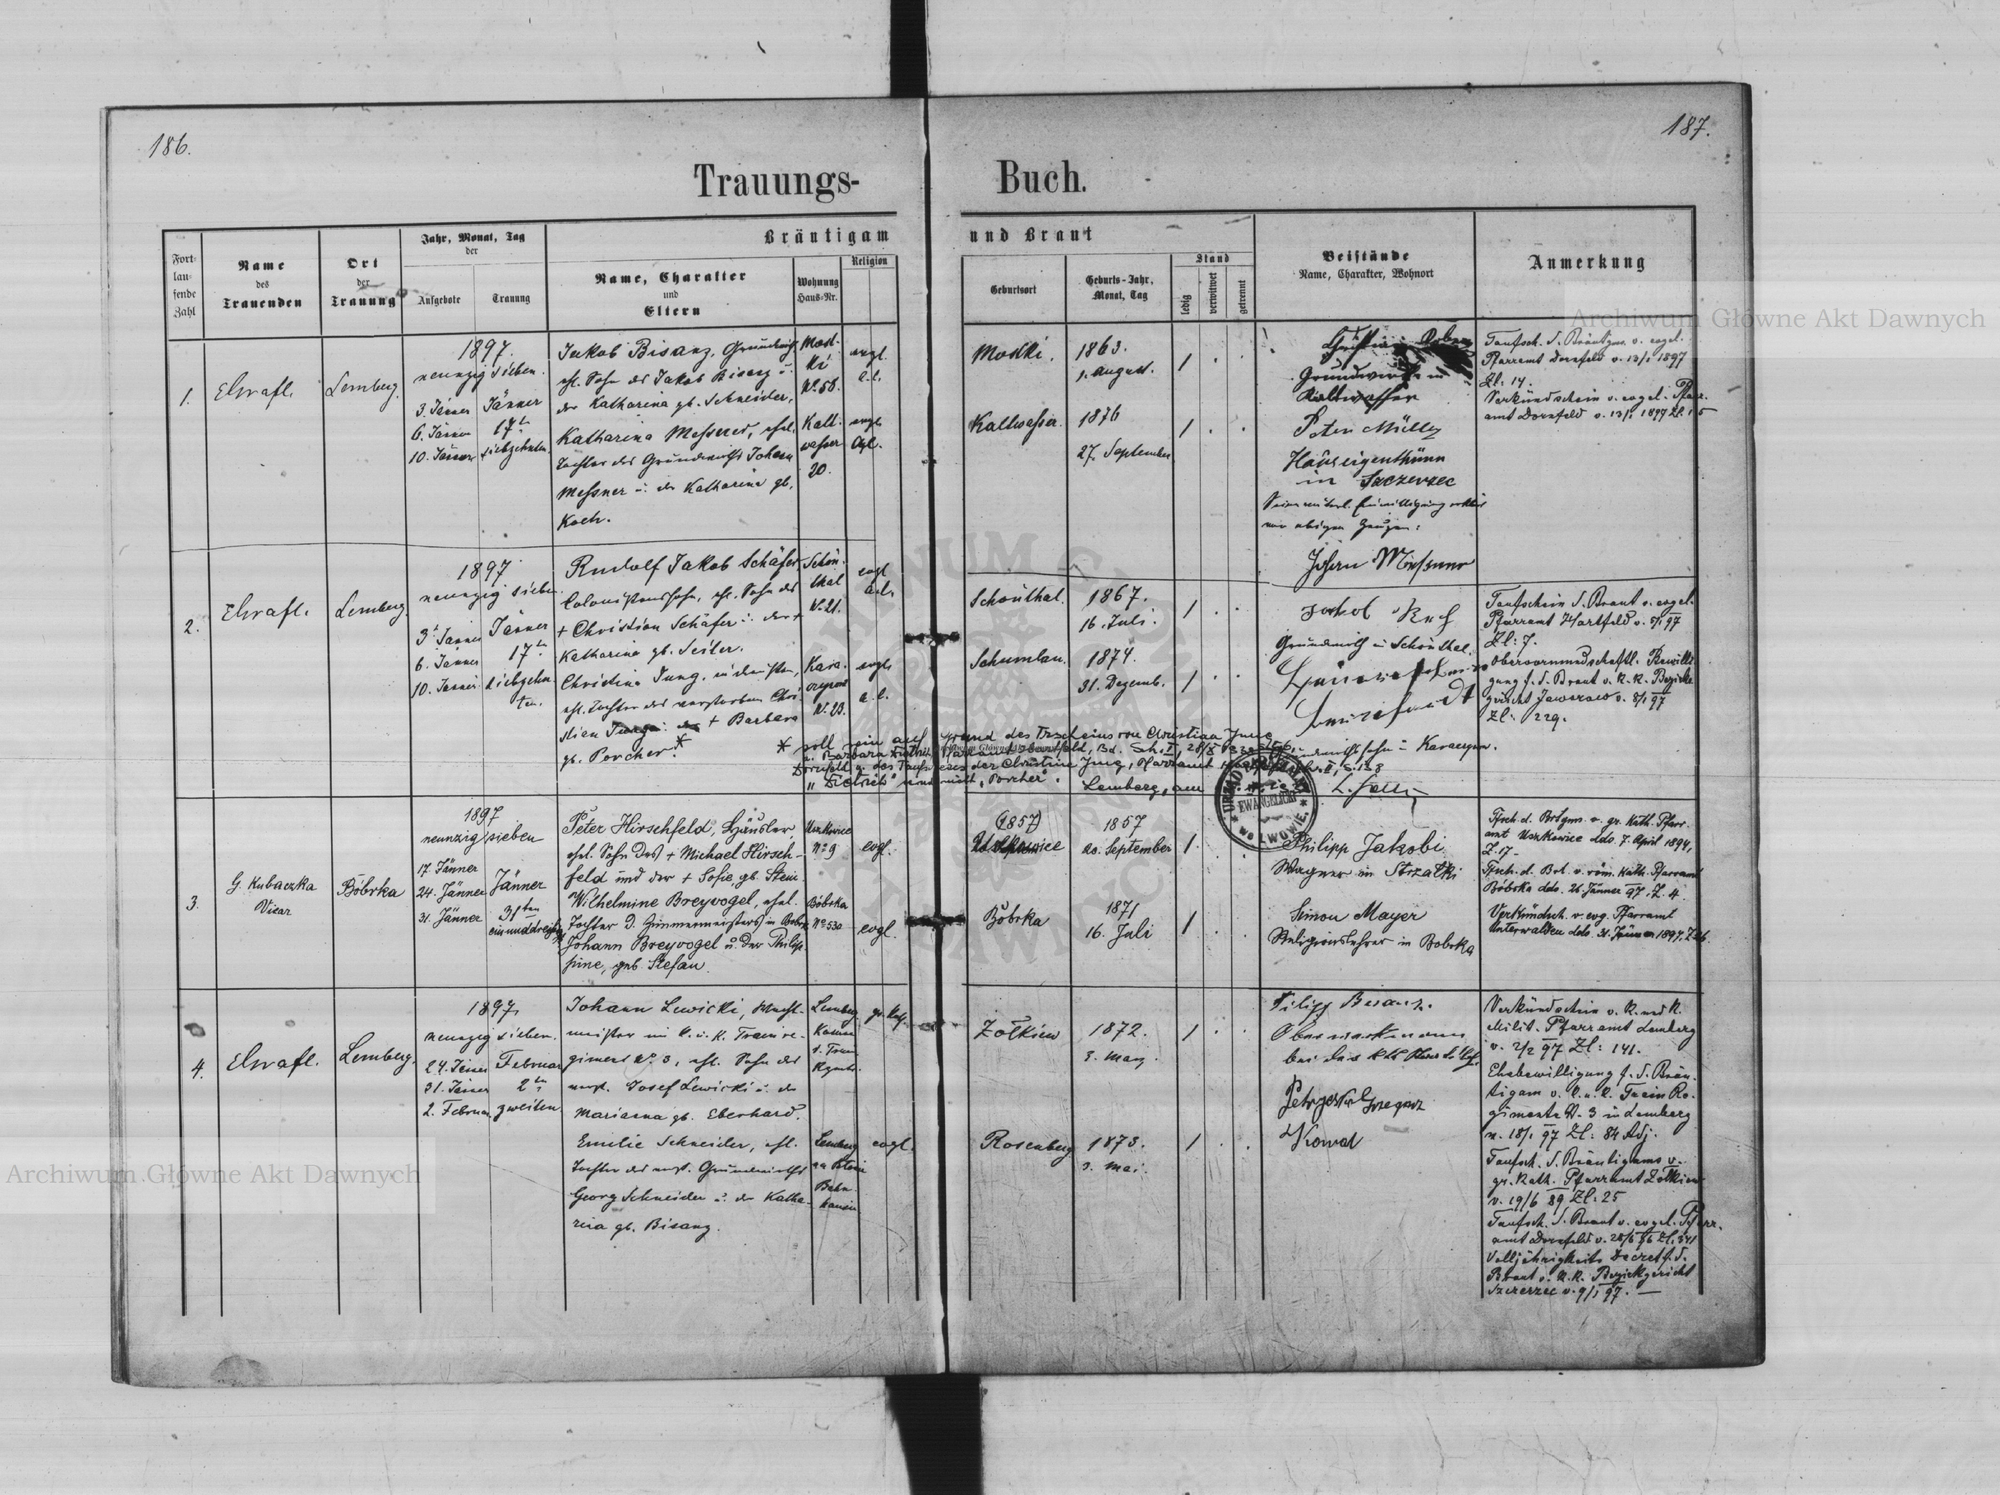 186.
187.
Trauungs-
Buch.
Fort-
lau-
fende
Zahl
Name
des
Trauenden
Ort
der
Trauung
Jahr, Monat, Tag
der
Aufgebote
Trauung
Bräutigam
und Braut
Name, Charakter
und
Eltern
Wohnung
Haus-Nr.
Religion
Geburtsort
Geburts-Jahr,
Monat, Tag
Stand
ledig
verwitwet
getrennt
Beistände
Name, Charakter, Wohnort
Anmerkung
1.
Lemberg.
1897.
neunzig sieben.
3. Jänner
6. Jänner
10. Jänner
Jänner
17ten
siebzehnten.
Jakob Bisanz, Grundwirth
ehl. Sohn des Jakob Bisanz u.
der Katharina gb. Schneider,
Katharina Messner, ehel.
Tochter des Grundwirths Johann
Messner u. der Katharina gb.
Koch.
No. 58.
Kalt-
wasser
20.
evgl.
evgl.
Mostki.
1863.
1. August.
1
Kaltwasser.
1876
27. September
1
Grundwirth in
Kaltwasser
Peter Müller
Hauseigenthümer
in Szczerzec
Johann Messner
Taufsch. d. Bräutgms. v. evgel.
Pfarramt Dornfeld v. 13/1 1897
Zl. 14.
Verkündschein v. evgel. Pfarr-
amt Dornfeld v. 13/1 1897 Zl. 15
2.
Lemberg.
1897
neunzig sieben
3t Jänner
6. Jänner
10. Jänner
Jänner
17ten
siebzehn-
ten.
Rudolf Jakob Schäfer
Colonistenssohn, ehl. Sohn des
+ Christian Schäfer u. der +
Katharina gb. Seiler.
Christina Jung,
ehl. Tochter des verstorbenen Chri-
stian Jung u. der + Barbara
gb. Porcher. *
Schön-
thal
No. 21.
No. 23.
evgl.
evgl.
a. c.
Schönthal.
1867.
16. Juli.
1
Schumlau.
1874.
31. Dezemb.
1
Grundwirth in Schönthal.
Taufschein d. Braut v. evgel.
Pfarramt Hartfeld v. 5/1 97
Zl: 7.
Obervormundschaftl. Bewilli-
gung f. d. Braut v. k. k. Bezirks-
gericht Jaworow v. 8/1 97
Zl: 229.
* soll sein auf Grund des Trscheins von Christian Jung
u. Barbara Dietrich
Dornfeld u. des Taufscheines der Christine Jung, Pfarramt
"Dietrich" und nicht "Porcher".
Lemberg, am
URZĄD PARAFIALNY
EWANGELICKI
we LWOWIE.
3.
G. Kubaczka
Vicar
Bóbrka
1897
neunzig sieben
17. Jänner
24. Jänner
31. Jänner
Jänner
31ten
einunddreissig
Peter Hirschfeld, Häusler
ehel. Sohn des + Michael Hirsch-
feld und der + Sofie gb. Stein
Wilhelmine Breyvogel, ehel.
Tochter d. Zimmermeisters in Bobrka
Johann Breyvogel u. der Philip-
pine, geb. Stefan.
Uszkowice
No 9
Bóbrka
No 530
evgl.
evgl.
(1857)
Uszkowice
1857
20. September
1
Bóbrka
1871
16. Juli
1
Philipp Jakobi
Wagner in Strzałki
Simon Mayer
Religionslehrer in Bobrka
Tfsch. d. Brtgms. v. gr. kath. Pfarr-
amt Uszkowice ddo. 7. April 1894,
Z. 17-
Tfsch. d. Brt. v. röm. kath. Pfarramt
Bóbrka ddo. 26. Jänner 97, Z. 4.
Verkündsch. v. evg. Pfarramt
Unterwalden ddo. 31. Jänner 1897, Z. 26.
4.
Lemberg.
1897,
neunzig sieben.
24. Jänner
31. Jänner
2. Februar
Februar
2ten
zweiten.
Johann Lewicki, Wacht-
meister im k. u. k. Trainre-
giment No. 3, ehl. Sohn des
verst. Josef Lewicki u. der
Marianna gb. Eberhard.
Emilie Schneider, ehl.
Tochter des verst. Grundwirths
Georg Schneider u. der Katha-
rina gb. Bisanz.
Lemberg
gr. kath.
Lemberg
evgl.
Żołkiew
1872.
1
Rosenberg
1873.
3. Mai.
1
Filipp Bisanz.
Kowal
Verkündschein v. k. und k.
Milit. Pfarramt Lemberg
v. 2/2 97 Zl: 141.
Ehebewilligung f. d. Bräu-
tigam v. k. u. k. Train Re-
gimente No. 3 in Lemberg
v. 18/1 97 Zl: 84 Adj.
Taufsch. d. Bräutigams v.
gr. kath. Pfarramt Żołkiew
v. 19/6 89 Zl: 25
Taufsch. d. Braut v. evgel. Pfarr-
amt Dornfeld v. 28/6 96 Zl: 341
Volljährigkeits Decret f. d.
Braut v. k. k. Bezirksgericht
Szczerzec v. 9/1 97. —
Archiwum Główne Akt Dawnych
Archiwum Główne Akt Dawnych